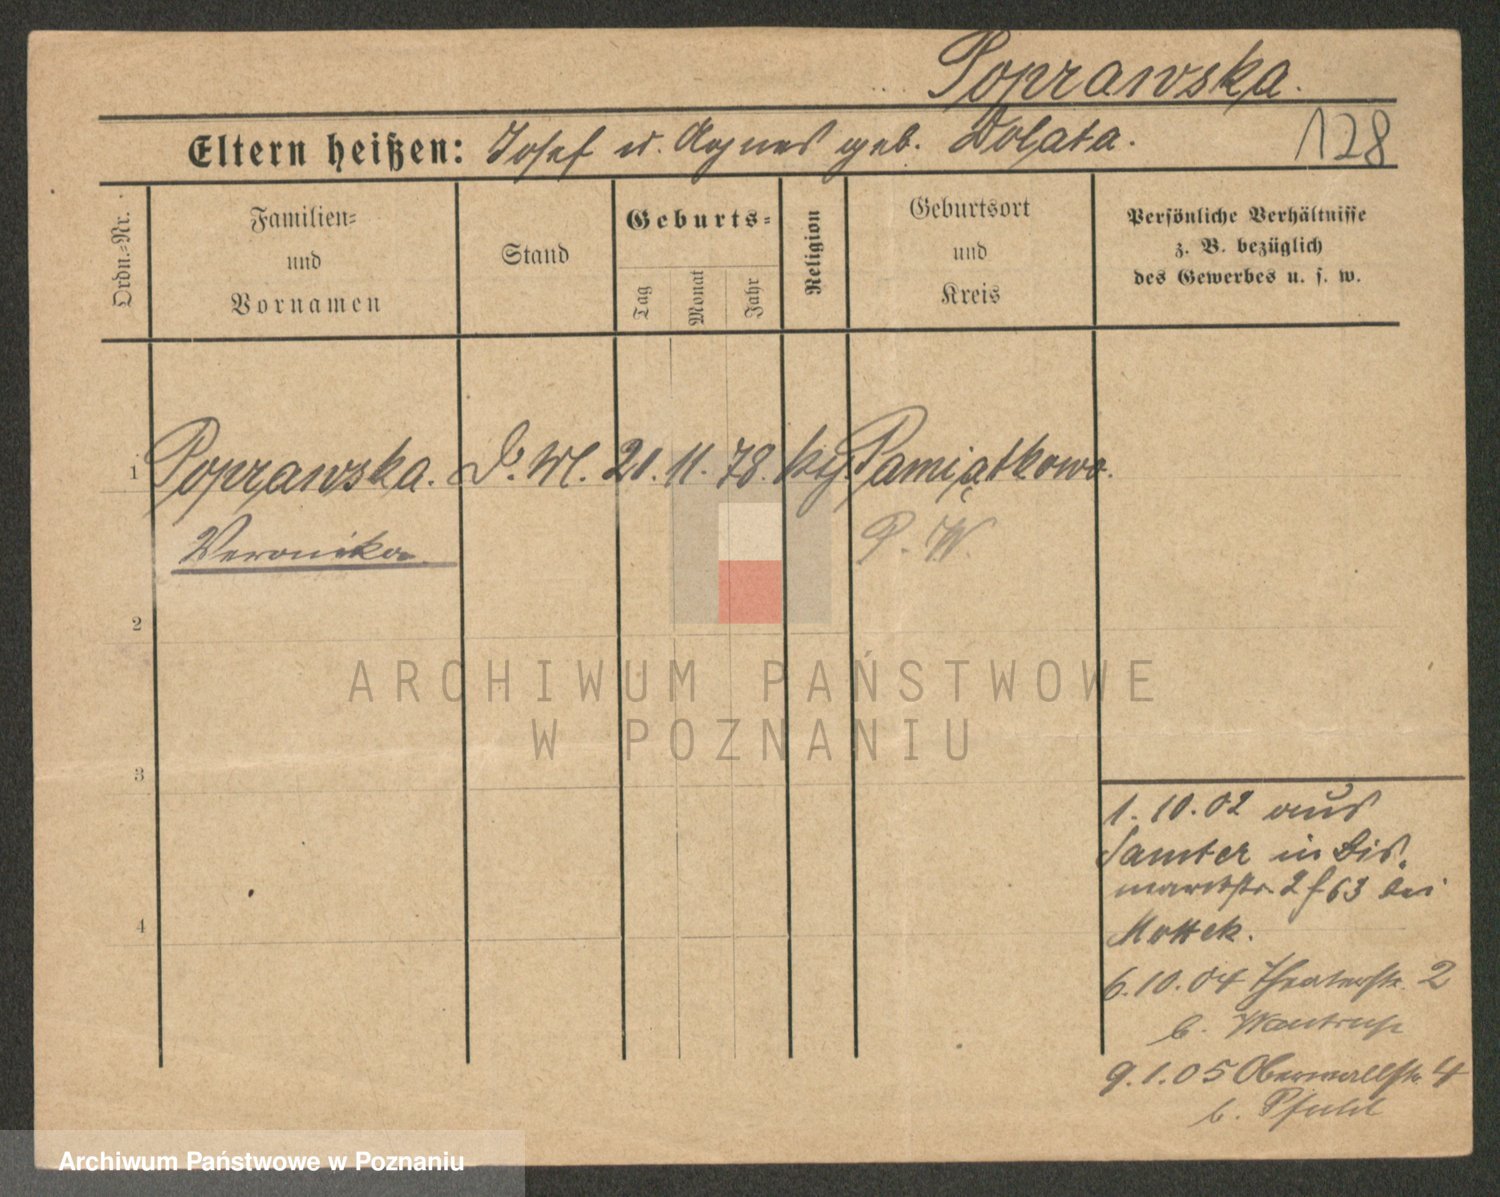 Poprawska.
Eltern heißen: Josef u. Agnes geb. Dolata.
128
Ordn.-Nr.
Familien-
und
Vornamen
Stand
Geburts-
Tag
Monat
Jahr
Religion
Geburtsort
und
Kreis
Persönliche Verhältnisse
z. B. bezüglich
des Gewerbes u. s. w.
1 Poprawska. D. M. 21. 11. 78. Pamiątkowo.
Veronika
P. W.
2
3
4
1. 10. 02 aus
Samter in Bis.
marckstr. 2 f 63 bei
Mottek.
6. 10. 04 Theaterstr. 2
b.
9. 1. 05 Oberwallstr. 4
b. Pfuhl
ARCHIWUM PAŃSTWOWE
W POZNANIU
Archiwum Państwowe w Poznaniu